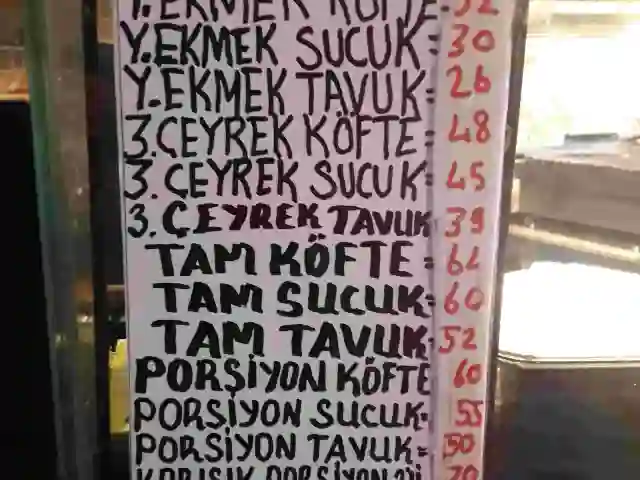 Y.EKMEK KÖFTE=32
Y.EKMEK SUCUK=30
Y.EKMEK TAVUK=26
3.ÇEYREK KÖFTE=48
3.ÇEYREK SUCUK=45
3.ÇEYREK TAVUK 39
TAM KÖFTE=64
TAM SUCUK=60
TAM TAVUK=52
PORSİYON KÖFTE 60
PORSİYON SUCUK=55
PORSİYON TAVUK=50
KARIŞIK PORSİYON 70